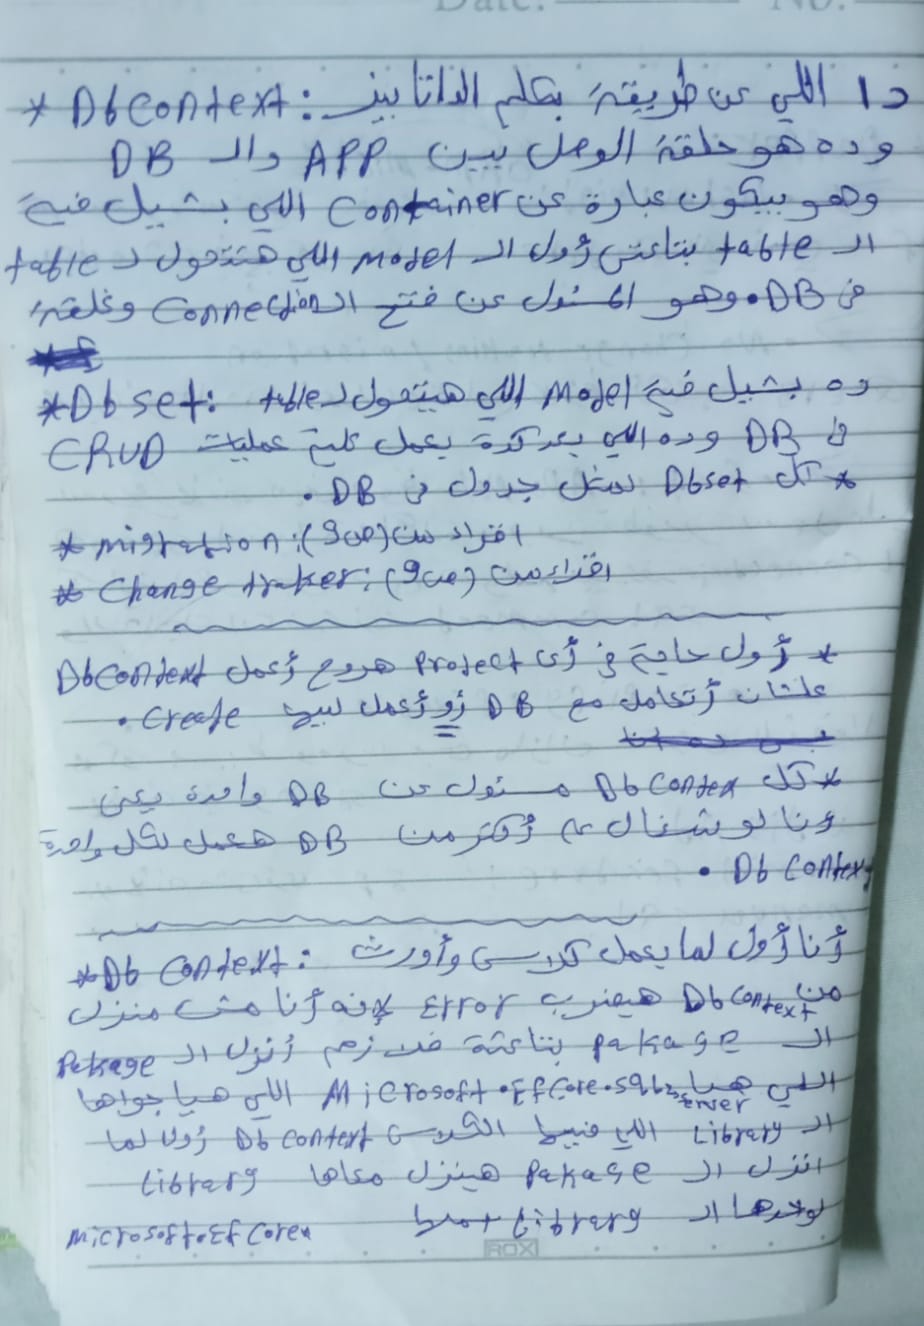 Date: No.
* DbContext: دا اللي عن طريقة بكلم الداتا بيز
وده هو حلقة الوصل بين APP والـ DB
وهو بيكون عبارة عن Container اللي بشيل فيه
الـ table بتاعتي أول الـ Model اللي هتتحول لـ table
في DB. وهو المسئول عن فتح الـ Connection وغلقة
* Db set: ده بشيل فيه Model اللي هيتحول لـ table
في DB وده اللي بعد كدة بعمل علية عمليات CRUD
* كل Dbset تمثل جدول في DB.
* migration: (ص9) اقراء من
* Change traker: (ص9) اقراء من
* أول حاجة في أى Project هروح أعمل DbContext
علشان أتعامل مع DB أو أعمل ليها Create.
* كل Db Contex مسئول عن DB واحدة يعني
وأنا لو شغال على أكتر من DB هعمل لكل واحدة
Db Context.
* Db Context: أنا أول لما بعمل كلاس وأورث
من Db Context هيضرب Error لإنه أنا مش منزل
الـ pakage بتاعتة فلازم أنزل الـ Pakage
اللي هيا Microsoft.EfCore.sqlserver اللي هيا جواها
الـ Library اللي فيها الكلاس Db Context أول لما
انزل الـ Pakage هينزل معاها Library
لوحدها الـ Library Microsoft.Ef Core
ROX